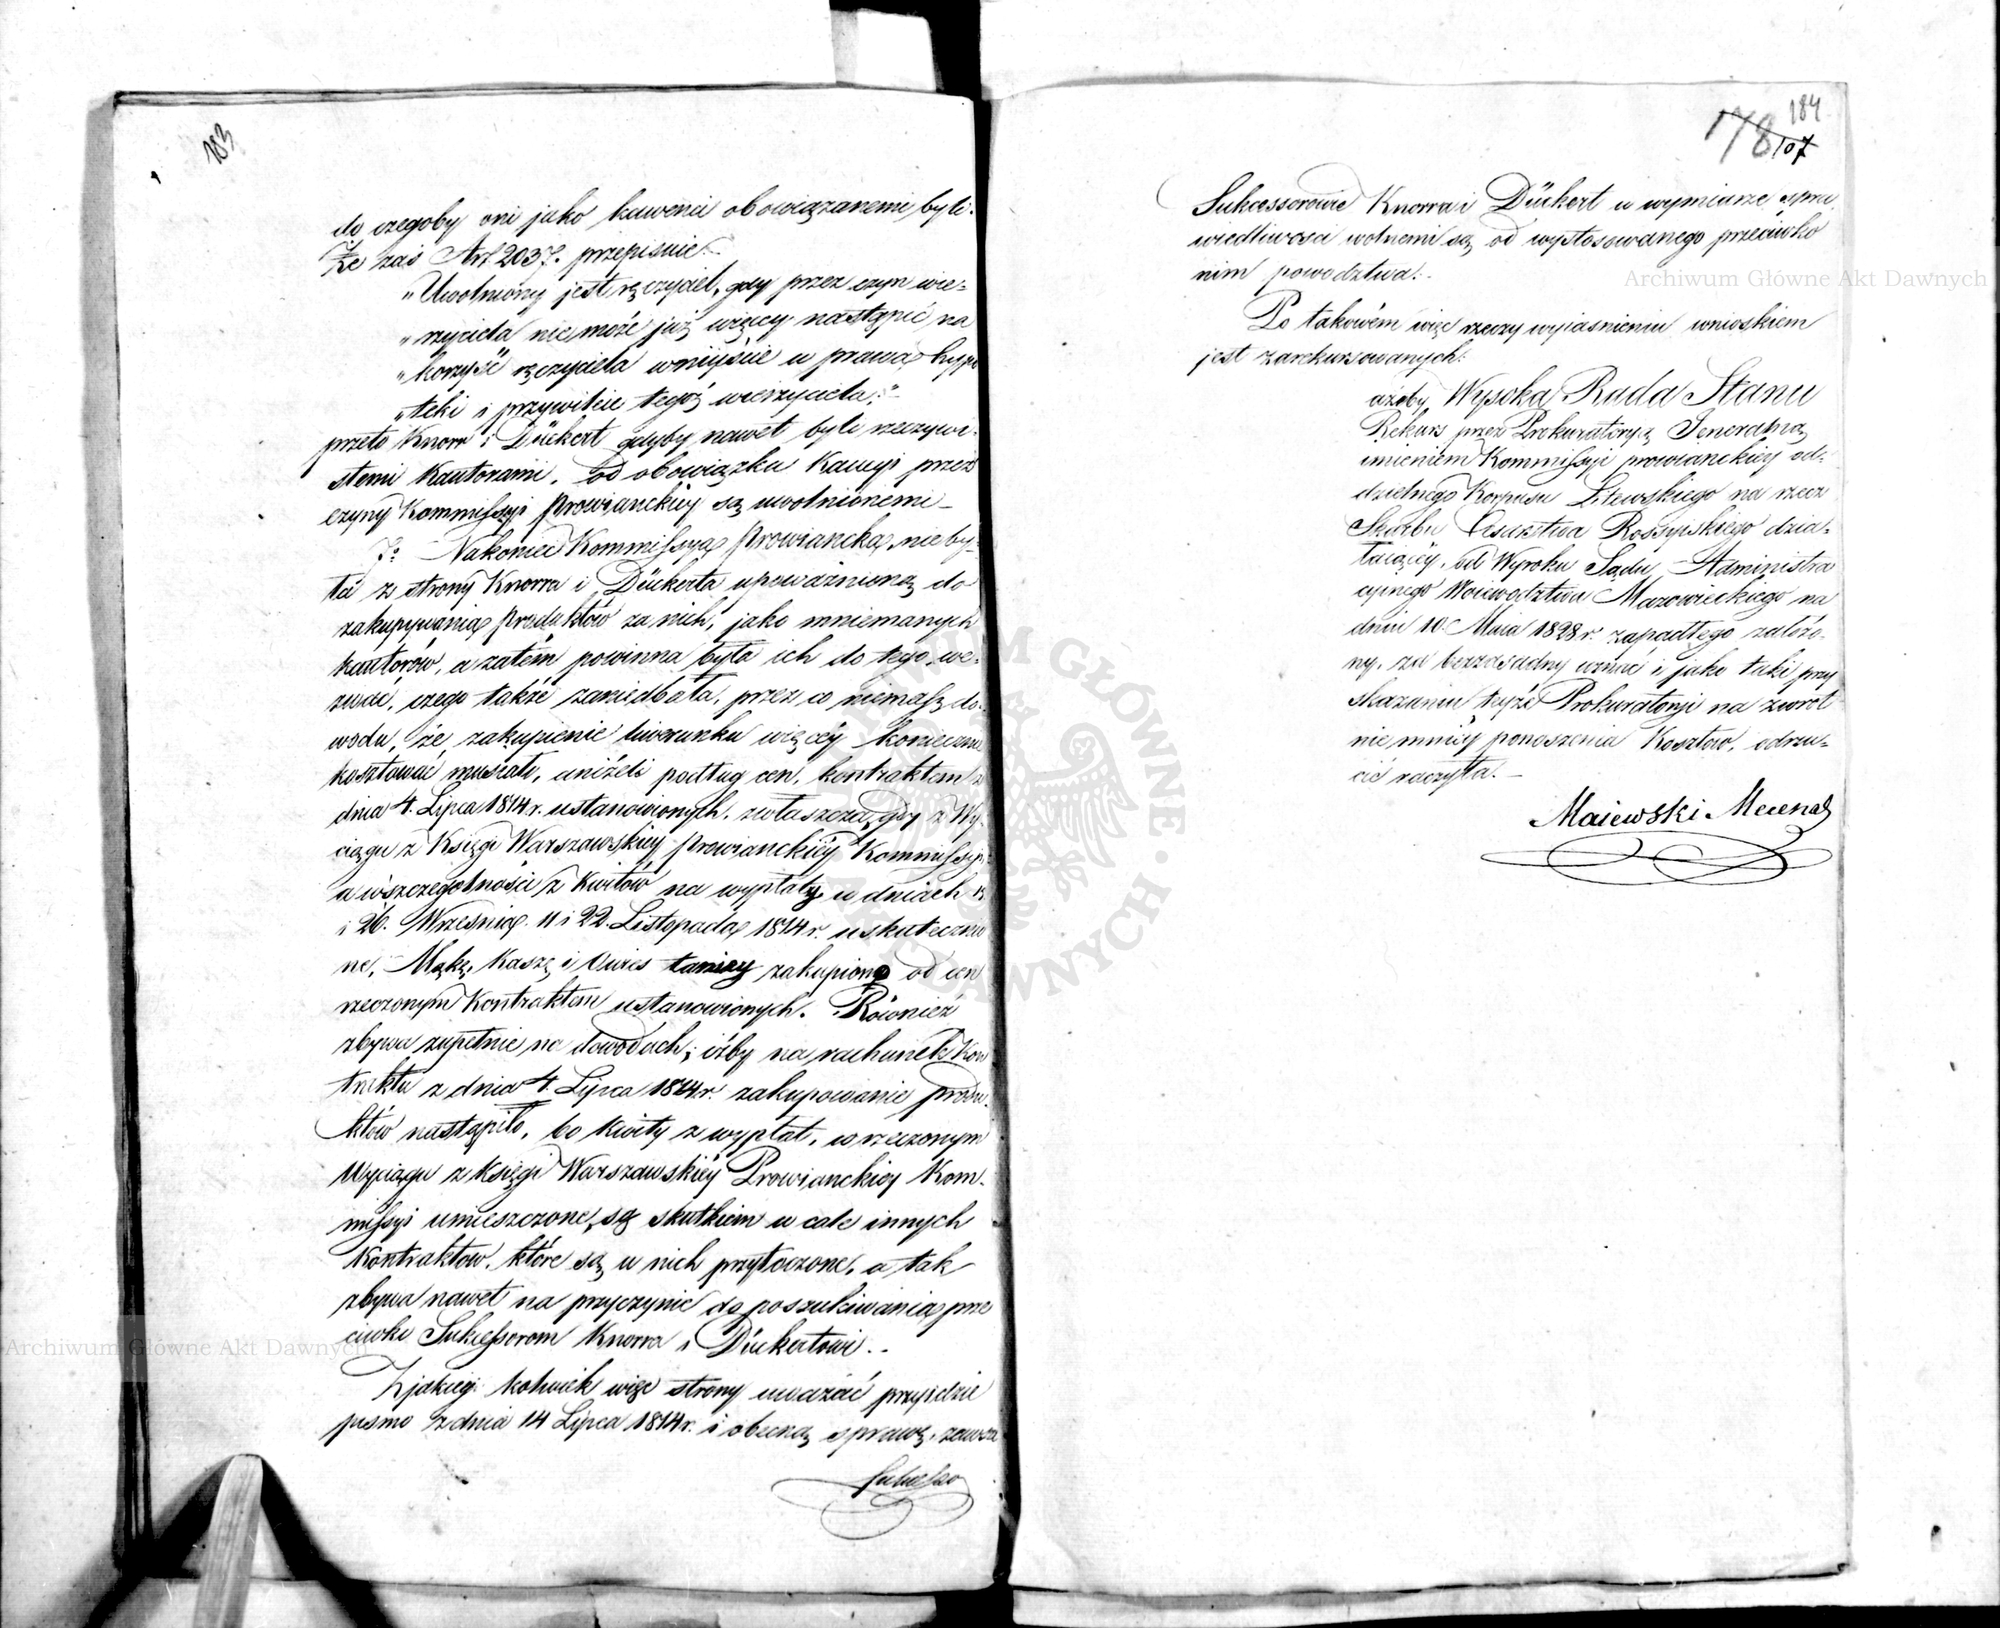 183
do czegoby oni jako kawenci obowiązanemi byli.
Że zaś Art 2037. przepisuie:
„Uwolniony jest ręczyciel, gdy przez czyn wie-
„rzyciela nie może już więcy nastąpić na
„korzyść ręczyciela wniyście w prawa, hypo
„teki i przywileie tegoż wierzyciela;"
przeto Knorr i Dückert gdyby nawet byli rzeczywi-
stemi Kautorami, od obowiązku Kaucyi przez
czyny Kommissyi Prowianckiey są uwolnionemi –
7o Nakoniec Kommissya Prowiancka, nieby-
ła ze strony Knorra i Dückerta upoważnioną do
zakupywania produktów za nich, jako mniemanych
kautorów, a zatém powinna była ich do tego we-
zwać, czego także zaniedbała, przez co niemasz do-
wodu, że zakupienie liwerunku więcéy koniecznie
kosztować musiało, aniżeli podług cen, kontraktem z
dnia 4. Lipca 1814 r. ustanowionych, zwłaszcza, gdy z Wy-
ciągu z Księgi Warszawskiéy Prowianckiéy Kommissyi,
a wszczególności z Kwitów na wypłaty w dniach
i 26. Września, 11 i 22. Listopada 1814 r. uskutecznio
ne, Mąkę, Kaszę i Owies taniey zakupiono od cen
rzeczonym Kontraktem ustanowionych. Również
zbywa zupełnie na dowodach, iżby na rachunek Kon
traktu z dnia 4. Lipca 1814 r. zakupowanie produ-
któw nastąpiło, bo kwity z wypłat, w rzeczonym
Wyciągu z Księgi Warszawskiéy Prowianckiey Kom-
missyi umieszczone, są skutkiem w cale innych
Kontraktów, które są w nich przytoczone, a tak
zbywa nawet na przyczynie do poszukiwania prze
ciwko Sukcessorom Knorra i Dückertowi. –
Z jakiegi kolwiek więc strony uważać przyidzie
pismo z dnia 14 Lipca 1814 r. i obecną sprawę, zawsze
Sukcesso
184
178
107
Sukcessorowie Knorra i Dückert w wymiarze spra
wiedliwości wolnemi są od wystosowanego przeciwko
nim powództwa. –
Po takowém więc rzeczy wyiaśnieniu wnioskiem
jest zarekursowanych:
ażeby Wysoka Rada Stanu
Rekurs przez Prokuratoryą Jeneralną
imieniem Kommissyi prowianckiéy od-
dzielnego Korpusu Litewskiego na rzecz
Skarbu Cesarstwa Rossyiskiego dzia-
łaiącéy, od Wyroku Sądu Administra
cyinego Woiewództwa Mazowieckiego na
dniu 10. Maia 1828 r. zapadłego założo-
ny, za bezzasadny uznać i jako taki przy
skazaniu teyże Prokuratoryi na zwrot
niemniéy ponoszenia Kosztów, odrzu-
cić raczyła. –
Maiewski Mecenas
Archiwum Główne Akt Dawnych
Archiwum Główne Akt Dawnych
ARCHIWUM GŁÓWNE AKT DAWNYCH